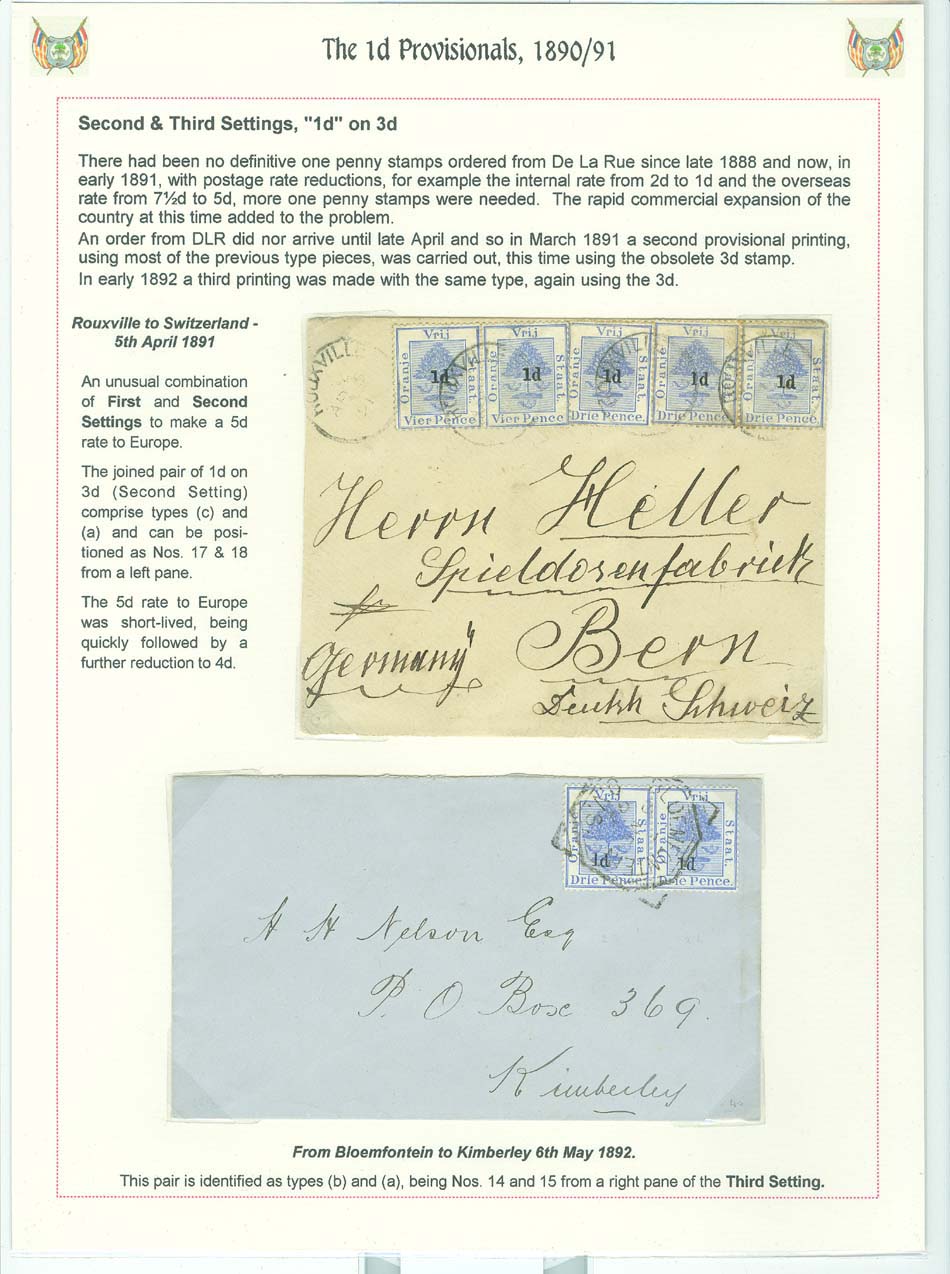 The 1d Provisionals, 1890/91
Second & Third Settings, "1d" on 3d
There had been no definitive one penny stamps ordered from De La Rue since late 1888 and now, in
early 1891, with postage rate reductions, for example the internal rate from 2d to 1d and the overseas
rate from 7½d to 5d, more one penny stamps were needed. The rapid commercial expansion of the
country at this time added to the problem.
An order from DLR did nor arrive until late April and so in March 1891 a second provisional printing,
using most of the previous type pieces, was carried out, this time using the obsolete 3d stamp.
In early 1892 a third printing was made with the same type, again using the 3d.
Rouxville to Switzerland -
5th April 1891
An unusual combination
of First and Second
Settings to make a 5d
rate to Europe.
The joined pair of 1d on
3d (Second Setting)
comprise types (c) and
(a) and can be posi-
tioned as Nos. 17 & 18
from a left pane.
The 5d rate to Europe
was short-lived, being
quickly followed by a
further reduction to 4d.
ROUXVILLE
Vrij Vrij Vrij Vrij Vrij
Oranje Staat. Oranje Staat. Oranje Staat. Oranje Staat. Oranje Staat.
1d 1d 1d 1d 1d
Vier Pence Vier Pence Drie Pence. Drie Pence. Drie Pence.
Herrn Heller
Spieldosenfabrick
Bern
Germany
Schweiz
Vrij Vrij
Oranje Staat. Oranje Staat.
1d 1d
Drie Pence. Drie Pence.
H H Nelson Esq
P. O Box 369.
Kimberley
From Bloemfontein to Kimberley 6th May 1892.
This pair is identified as types (b) and (a), being Nos. 14 and 15 from a right pane of the Third Setting.